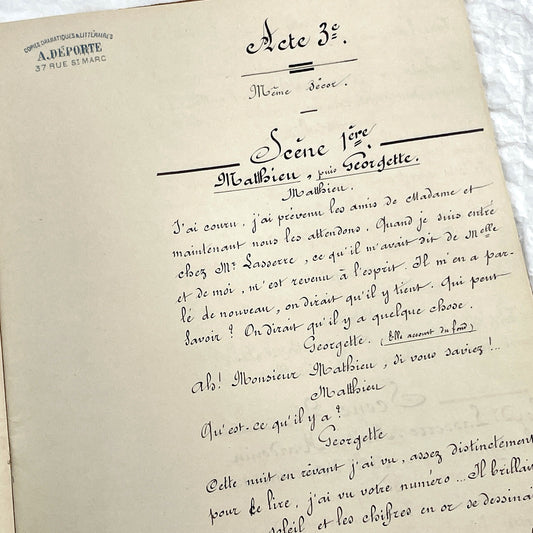 COPIES DRAMATIQUES & LITTÉRAIRES
A. DÉPORTE
37 RUE ST MARC
Acte 3e.
Même décor.
Scène 1ère.
Matthieu, puis Georgette.
Matthieu.
J'ai couru, j'ai prévenu les amis de Madame et
maintenant nous les attendons. Quand je suis entré
chez Mr. Lasserre, ce qu'il m'avait dit de Melle
et de moi, m'est revenu à l'esprit. Il m'en a par-
lé de nouveau, on dirait qu'il y tient. Qui peut
savoir? On dirait qu'il y a quelque chose.
Georgette. (Elle accourt du fond)
Ah! Monsieur Mathieu, si vous saviez!..
Matthieu
Qu'est-ce qu'il y a?
Georgette
Cette nuit en rêvant j'ai vu, assez distinctement
pour le lire, j'ai vu votre numéro... Il brillai
soleil et les chiffres en or se dessina